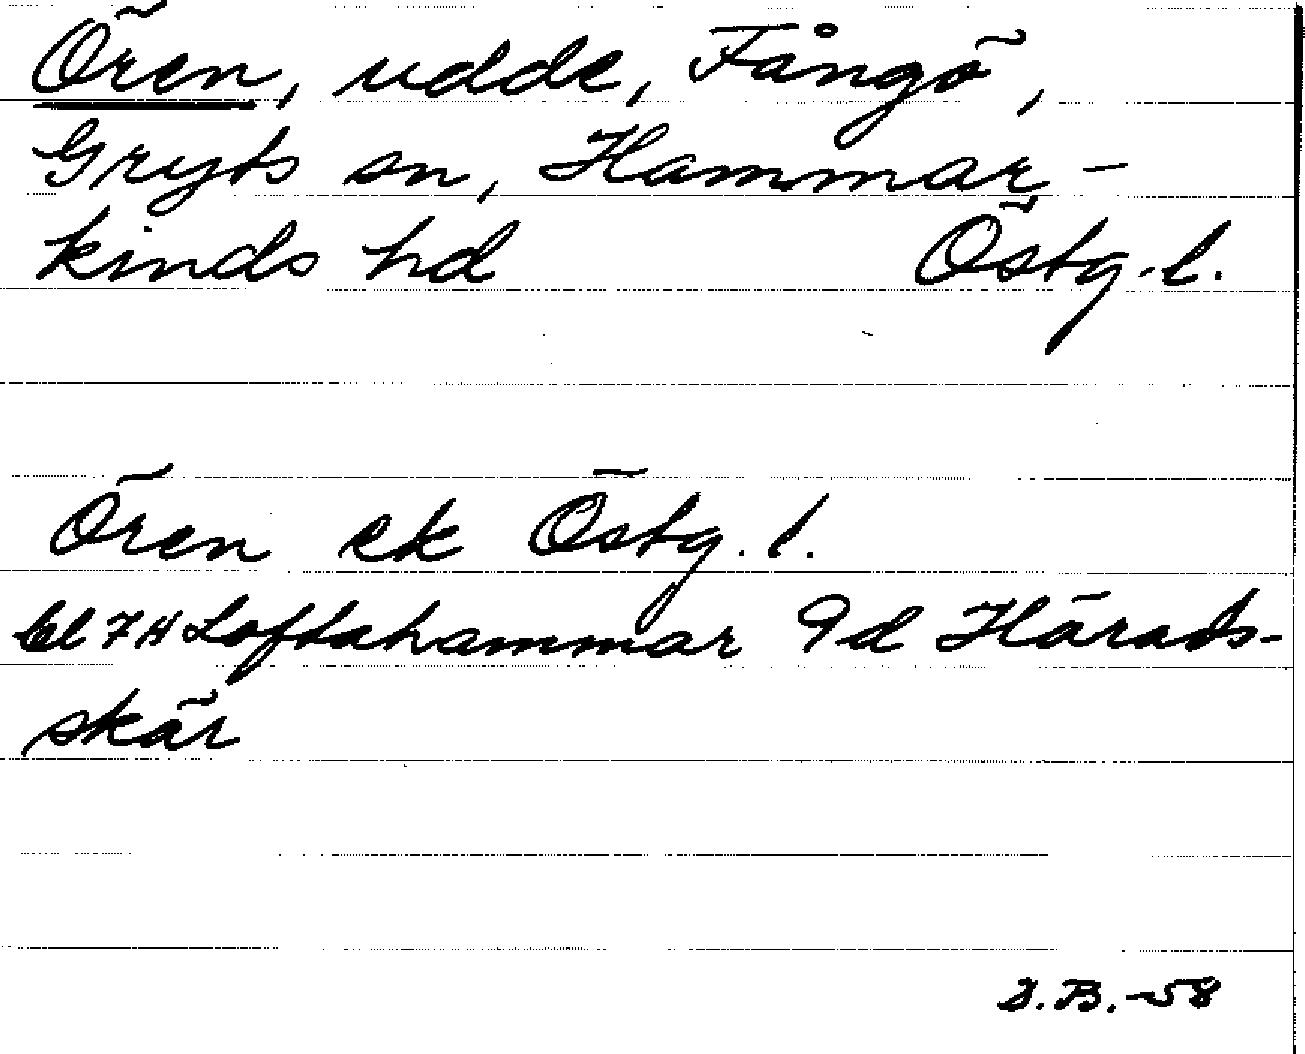 Ören, udde, Fångö,
Gryts sn, Hammar-
kinds hd Östg.l.
Ören ek Östg.l.
bl 7H Loftahammar 9d Härads-
skär
S.B.-58